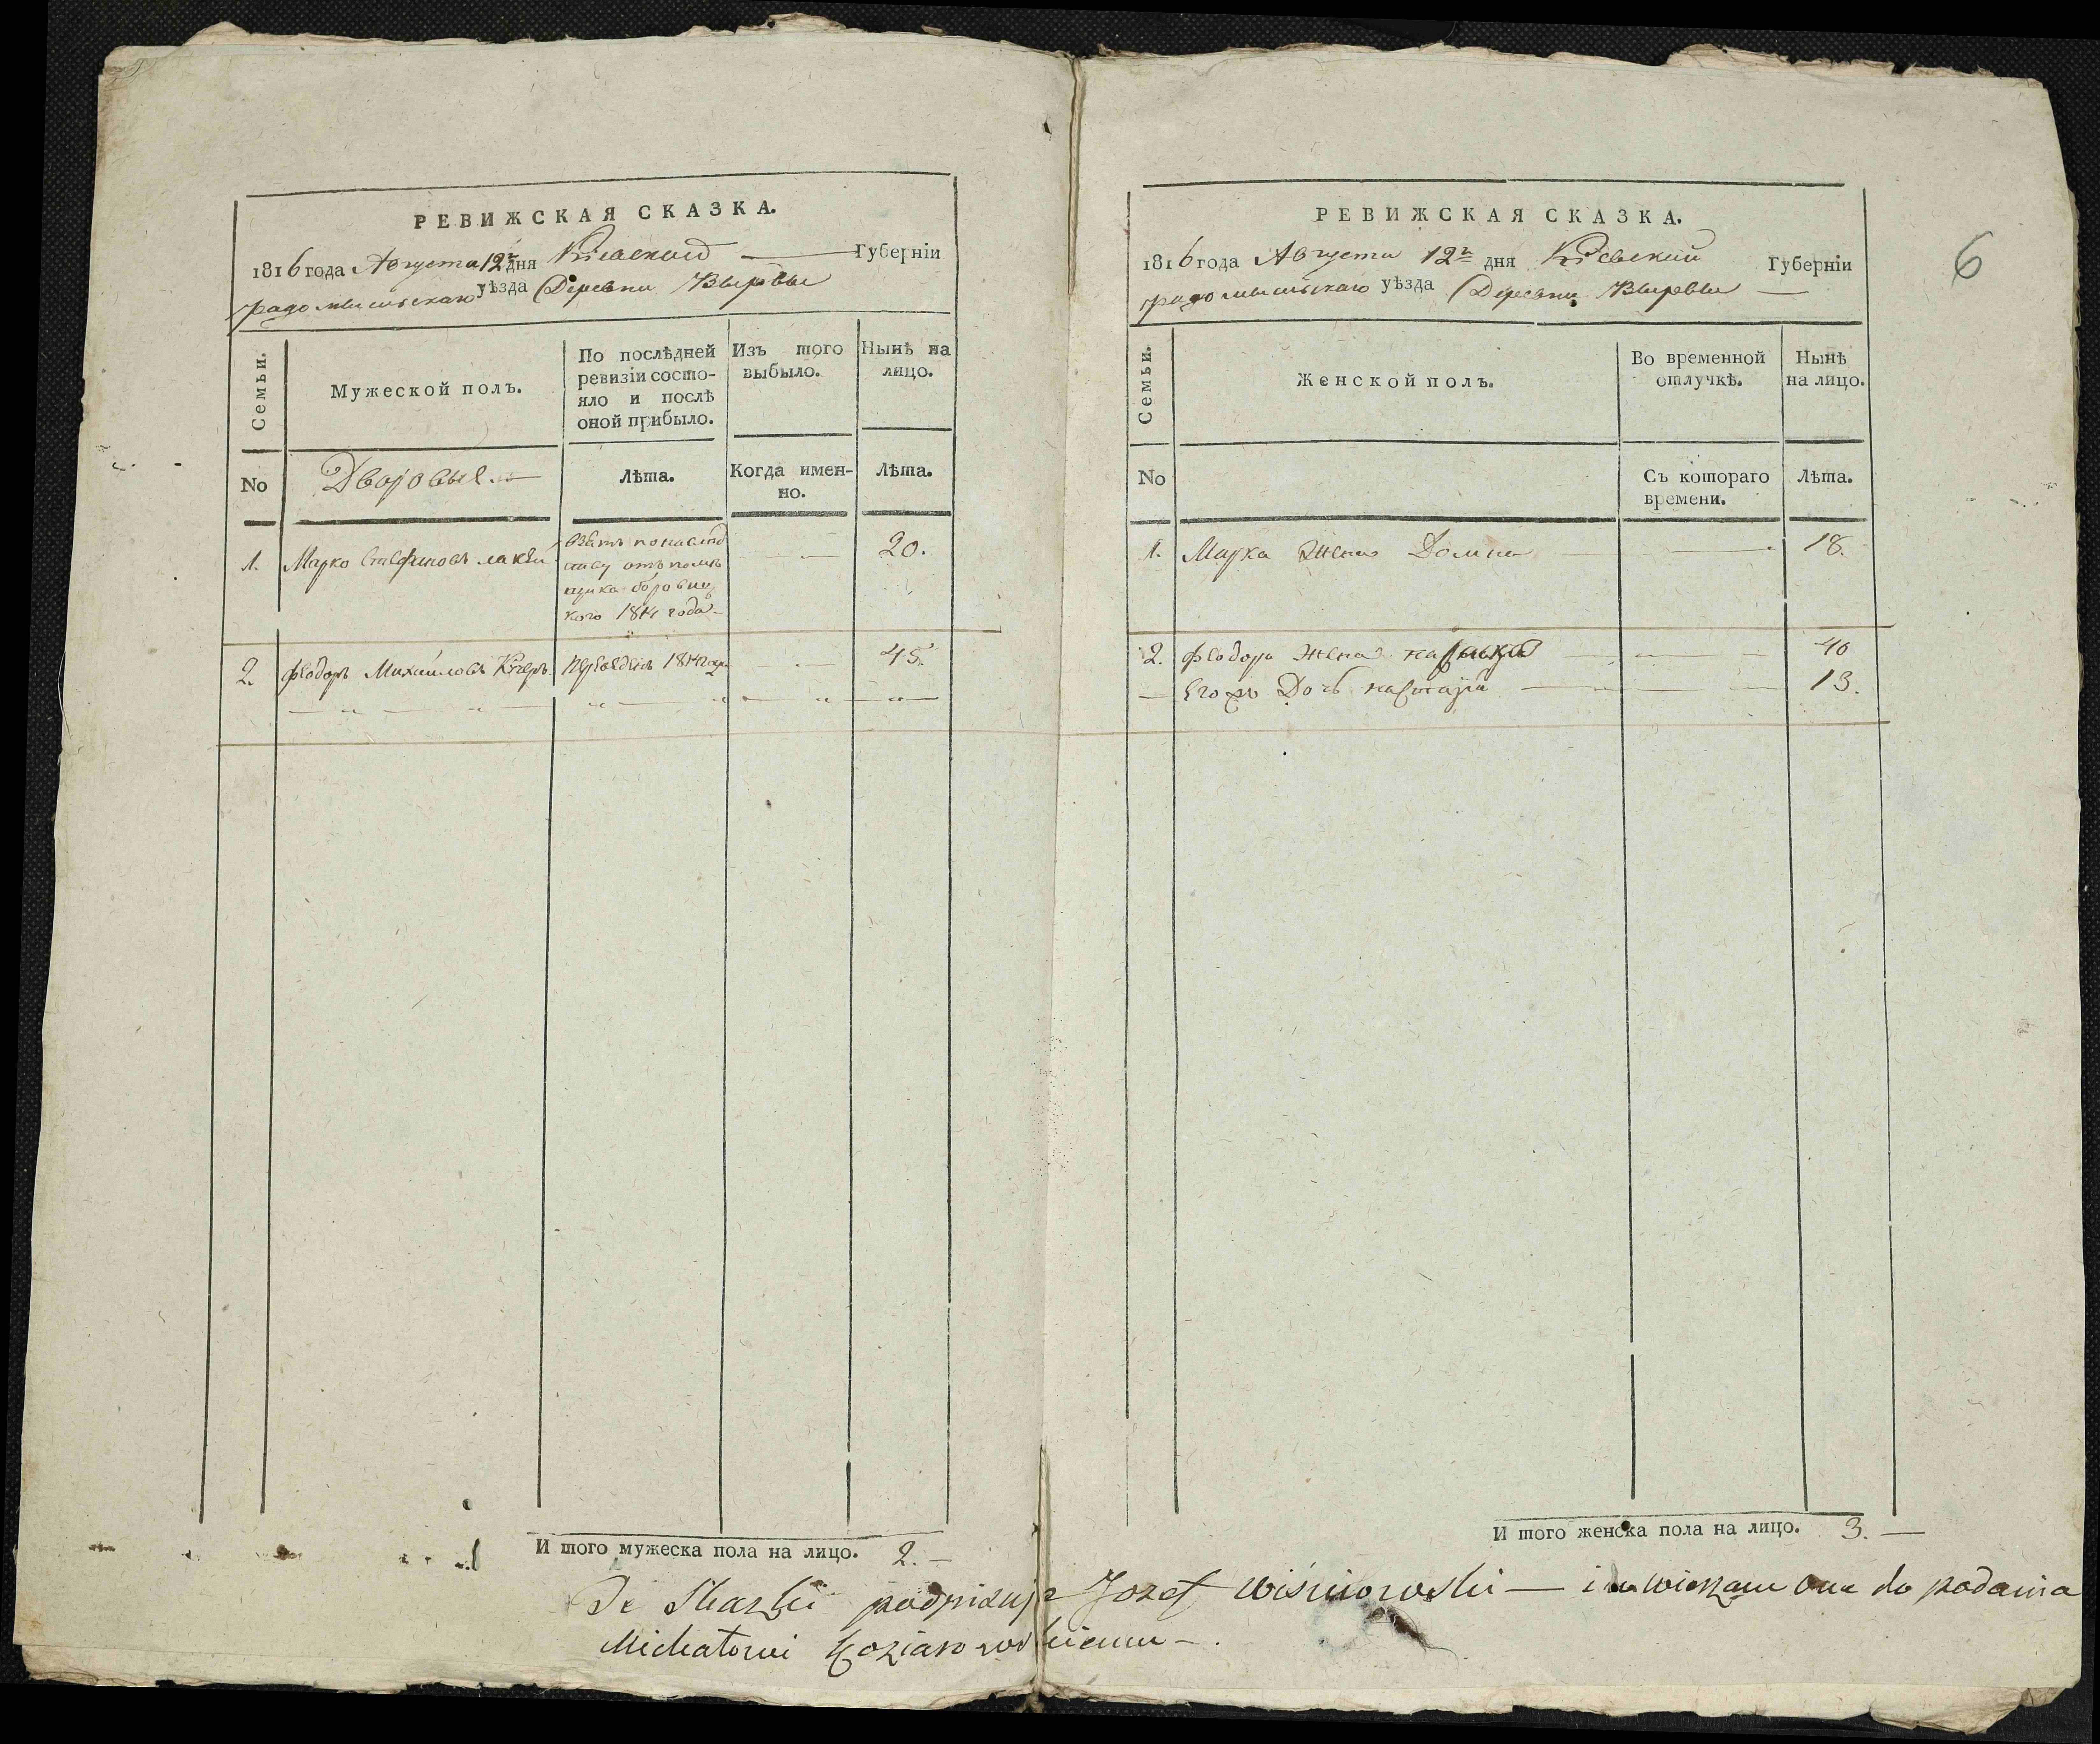 РЕВИЖСКАЯ СКАЗКА.
1816 года Августа 12 дня Кіевской Губерніи
радомышльскаго уѣзда Деревни Вырвы
Семьи.
Мужеской полъ.
По послѣдней ревизіи состо-
яло и послѣ
оной прибыло.
Изъ того
выбыло.
Нынѣ на
лицо.
No
Дворовые.
Лѣта.
Когда имен-
но.
Лѣта.
1.
Марко лакей
Взятъ понаслед
ству отъ помѣ
щика
кого 1814 года
20.
2.
федоръ Михайловъ Кучеръ
Переведенъ 1814 года
45.
И того мужеска пола на лицо. 2.
РЕВИЖСКАЯ СКАЗКА.
1816 года Августа 12 дня Кіевской Губерніи
радомышльскаго уѣзда Деревни Вырвы
6
Семьи.
Женской полъ.
Во временной
отлучкѣ.
Нынѣ
на лицо.
No
Съ котораго
времени.
Лѣта.
1.
Марка Жена Домна
18.
2.
федора Жена
40
Его Дочь
13.
И того женска пола на лицо. 3.
Te Skazki podpisuje Jozef Wiśniowski — i do podania
Michałowi